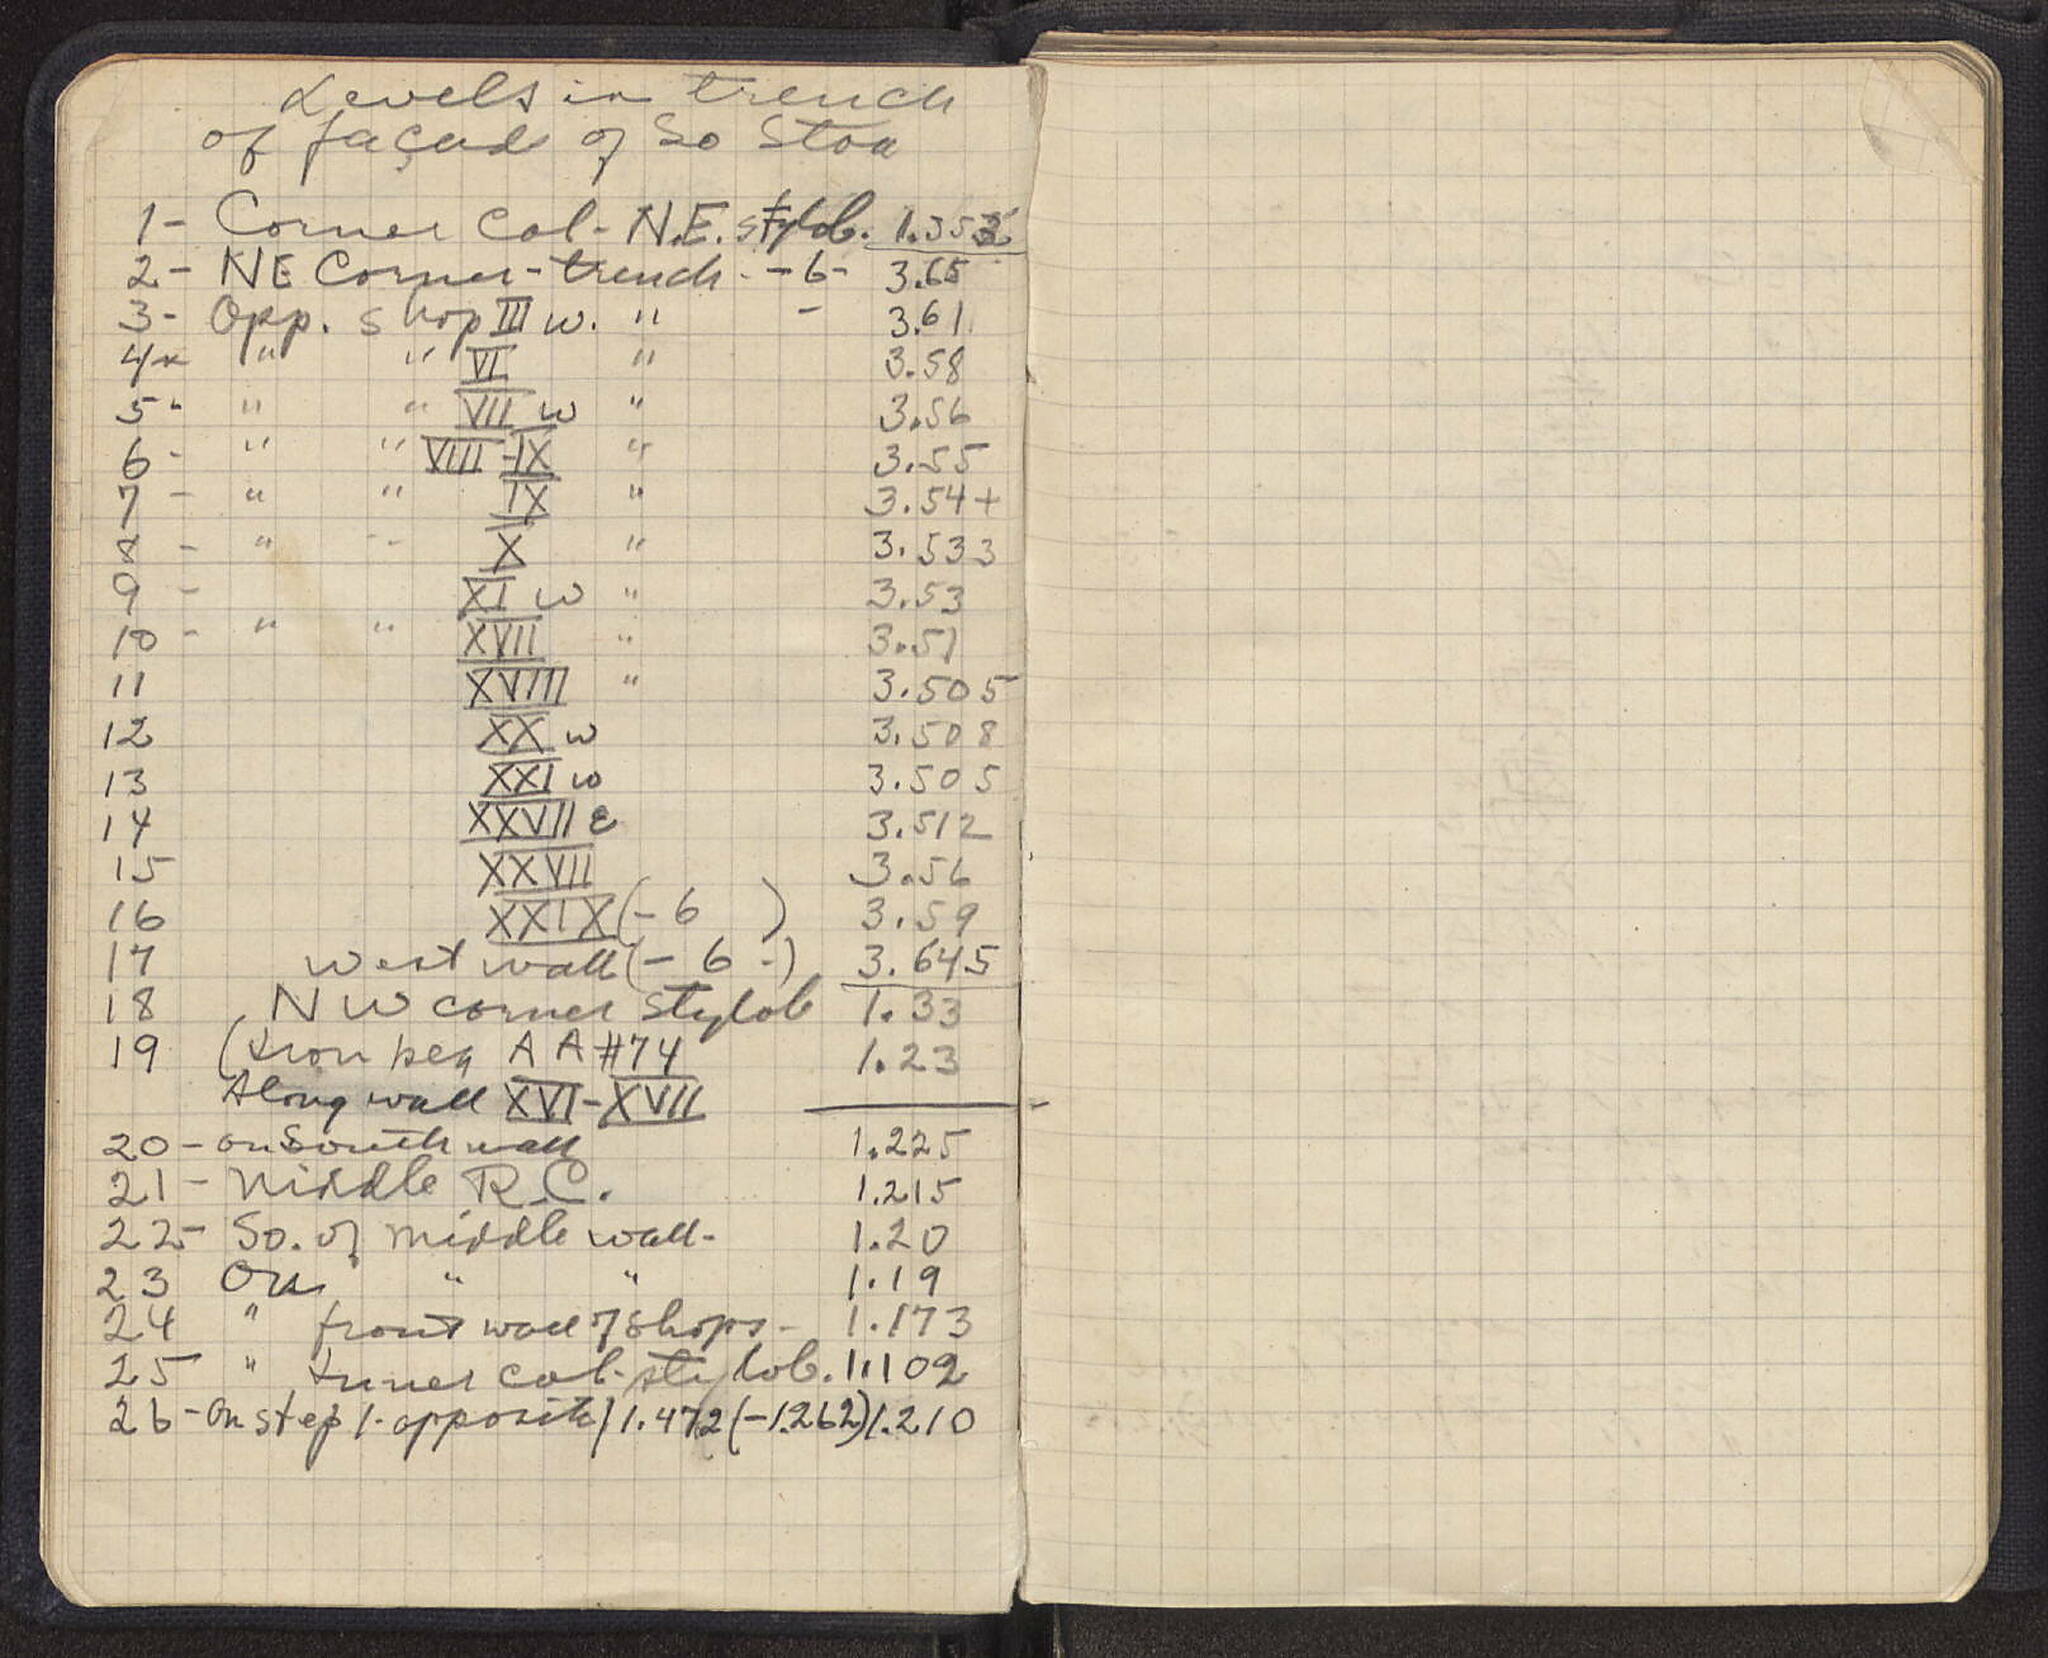 Levels in trench
of façade of So Stoa
1- Corner Col- N.E. stylob. 1.353
2- NE Corner-trench - -6- 3.65
3- Opp. shop III w. " - 3.61
4- " " VI " 3.58
5- " " VII w " 3.56
6- " " VIII-IX " 3.55
7- " " IX " 3.54+
8- " " X " 3.533
9- XI w " 3.53
10- " " XVII " 3.51
11 XVIII " 3.505
12 XX w 3.508
13 XXI w 3.505
14 XXVII E 3.512
15 XXVII 3.56
16 XXIX (-6 ) 3.59
17 West wall (-6-) 3.645
18 NW corner stylob 1.33
19 (Iron peg AA #74 1.23
Along wall XVI-XVII
20- on South wall 1.225
21- Middle R.C. 1.215
22- So. of middle wall- 1.20
23 On " " 1.19
24 " front wall of shops- 1.173
25 " Inner col. stylob. 1.102
26- On step 1- opposite / 1.472 (-1.262) 1.210